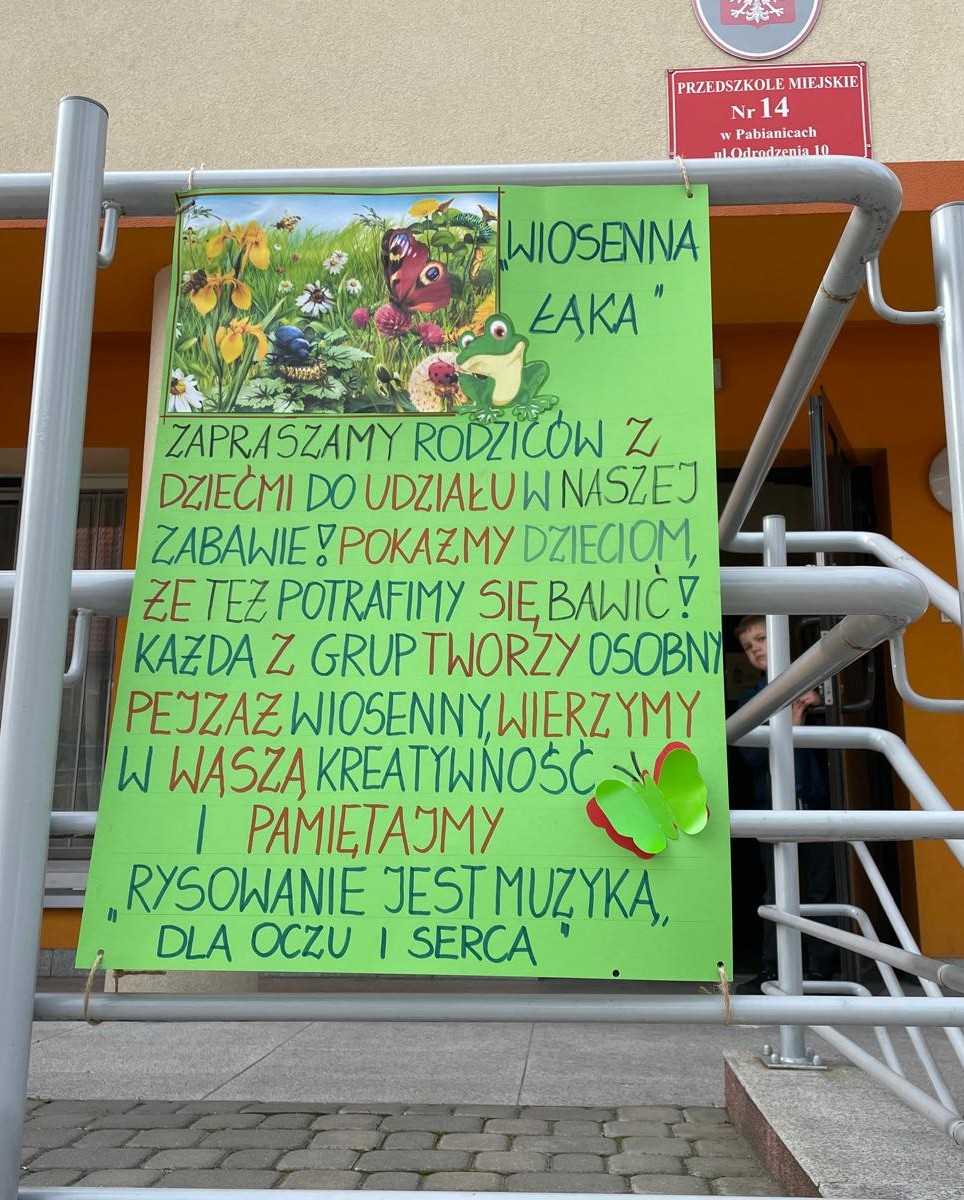 PRZEDSZKOLE MIEJSKIE
Nr 14
w Pabianicach
ul.Odrodzenia 10
„WIOSENNA
ŁĄKA"
ZAPRASZAMY RODZICÓW Z
DZIEĆMI DO UDZIAŁU W NASZEJ
ZABAWIE! POKAŻMY DZIECIOM,
ŻE TEŻ POTRAFIMY SIĘ BAWIĆ!
KAŻDA Z GRUP TWORZY OSOBNY
PEJZAŻ WIOSENNY, WIERZYMY
W WASZĄ KREATYWNOŚĆ
I PAMIĘTAJMY
„RYSOWANIE JEST MUZYKĄ,
DLA OCZU I SERCA"